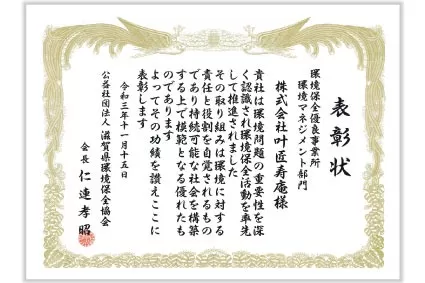 表彰状
環境保全優良事業所
環境マネジメント部門
株式会社叶匠寿庵様
貴社は環境問題の重要性を深
く認識され環境保全活動を率先
して推進されました
その取り組みは環境に対する
責任と役割を自覚されるもの
であり持続可能な社会を構築
する上で模範となる優れたも
のであります
よってその功績を讃えここに
表彰します
令和三年十一月十五日
公益社団法人 滋賀県環境保全協会
会長 仁連孝昭